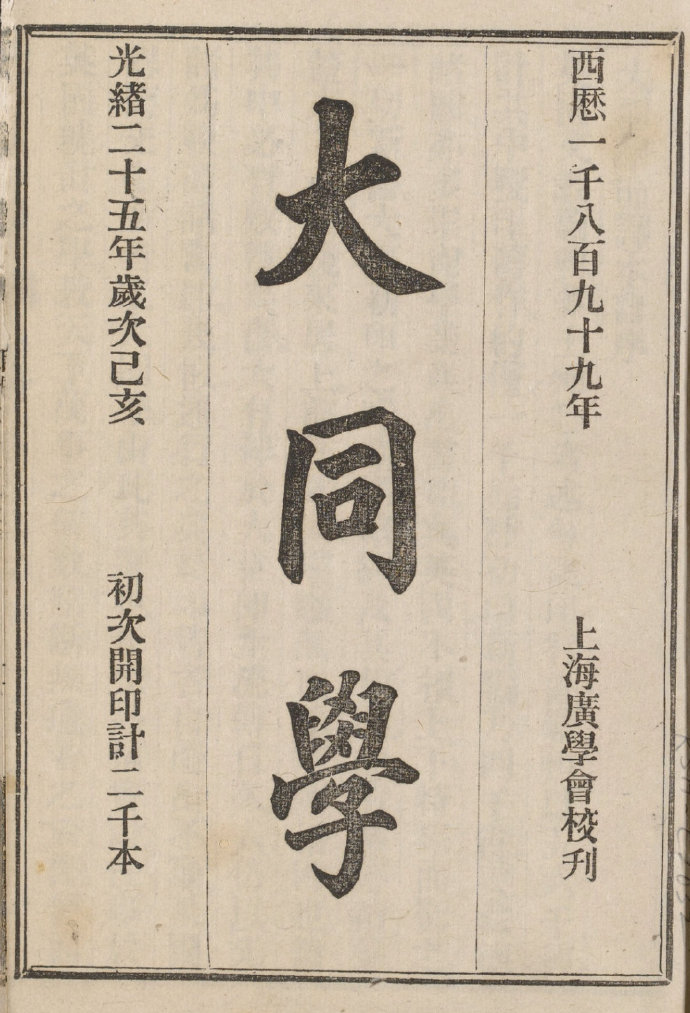 西曆一千八百九十九年
上海廣學會校刋
大同學
光緒二十五年歲次己亥
初次開印計二千本